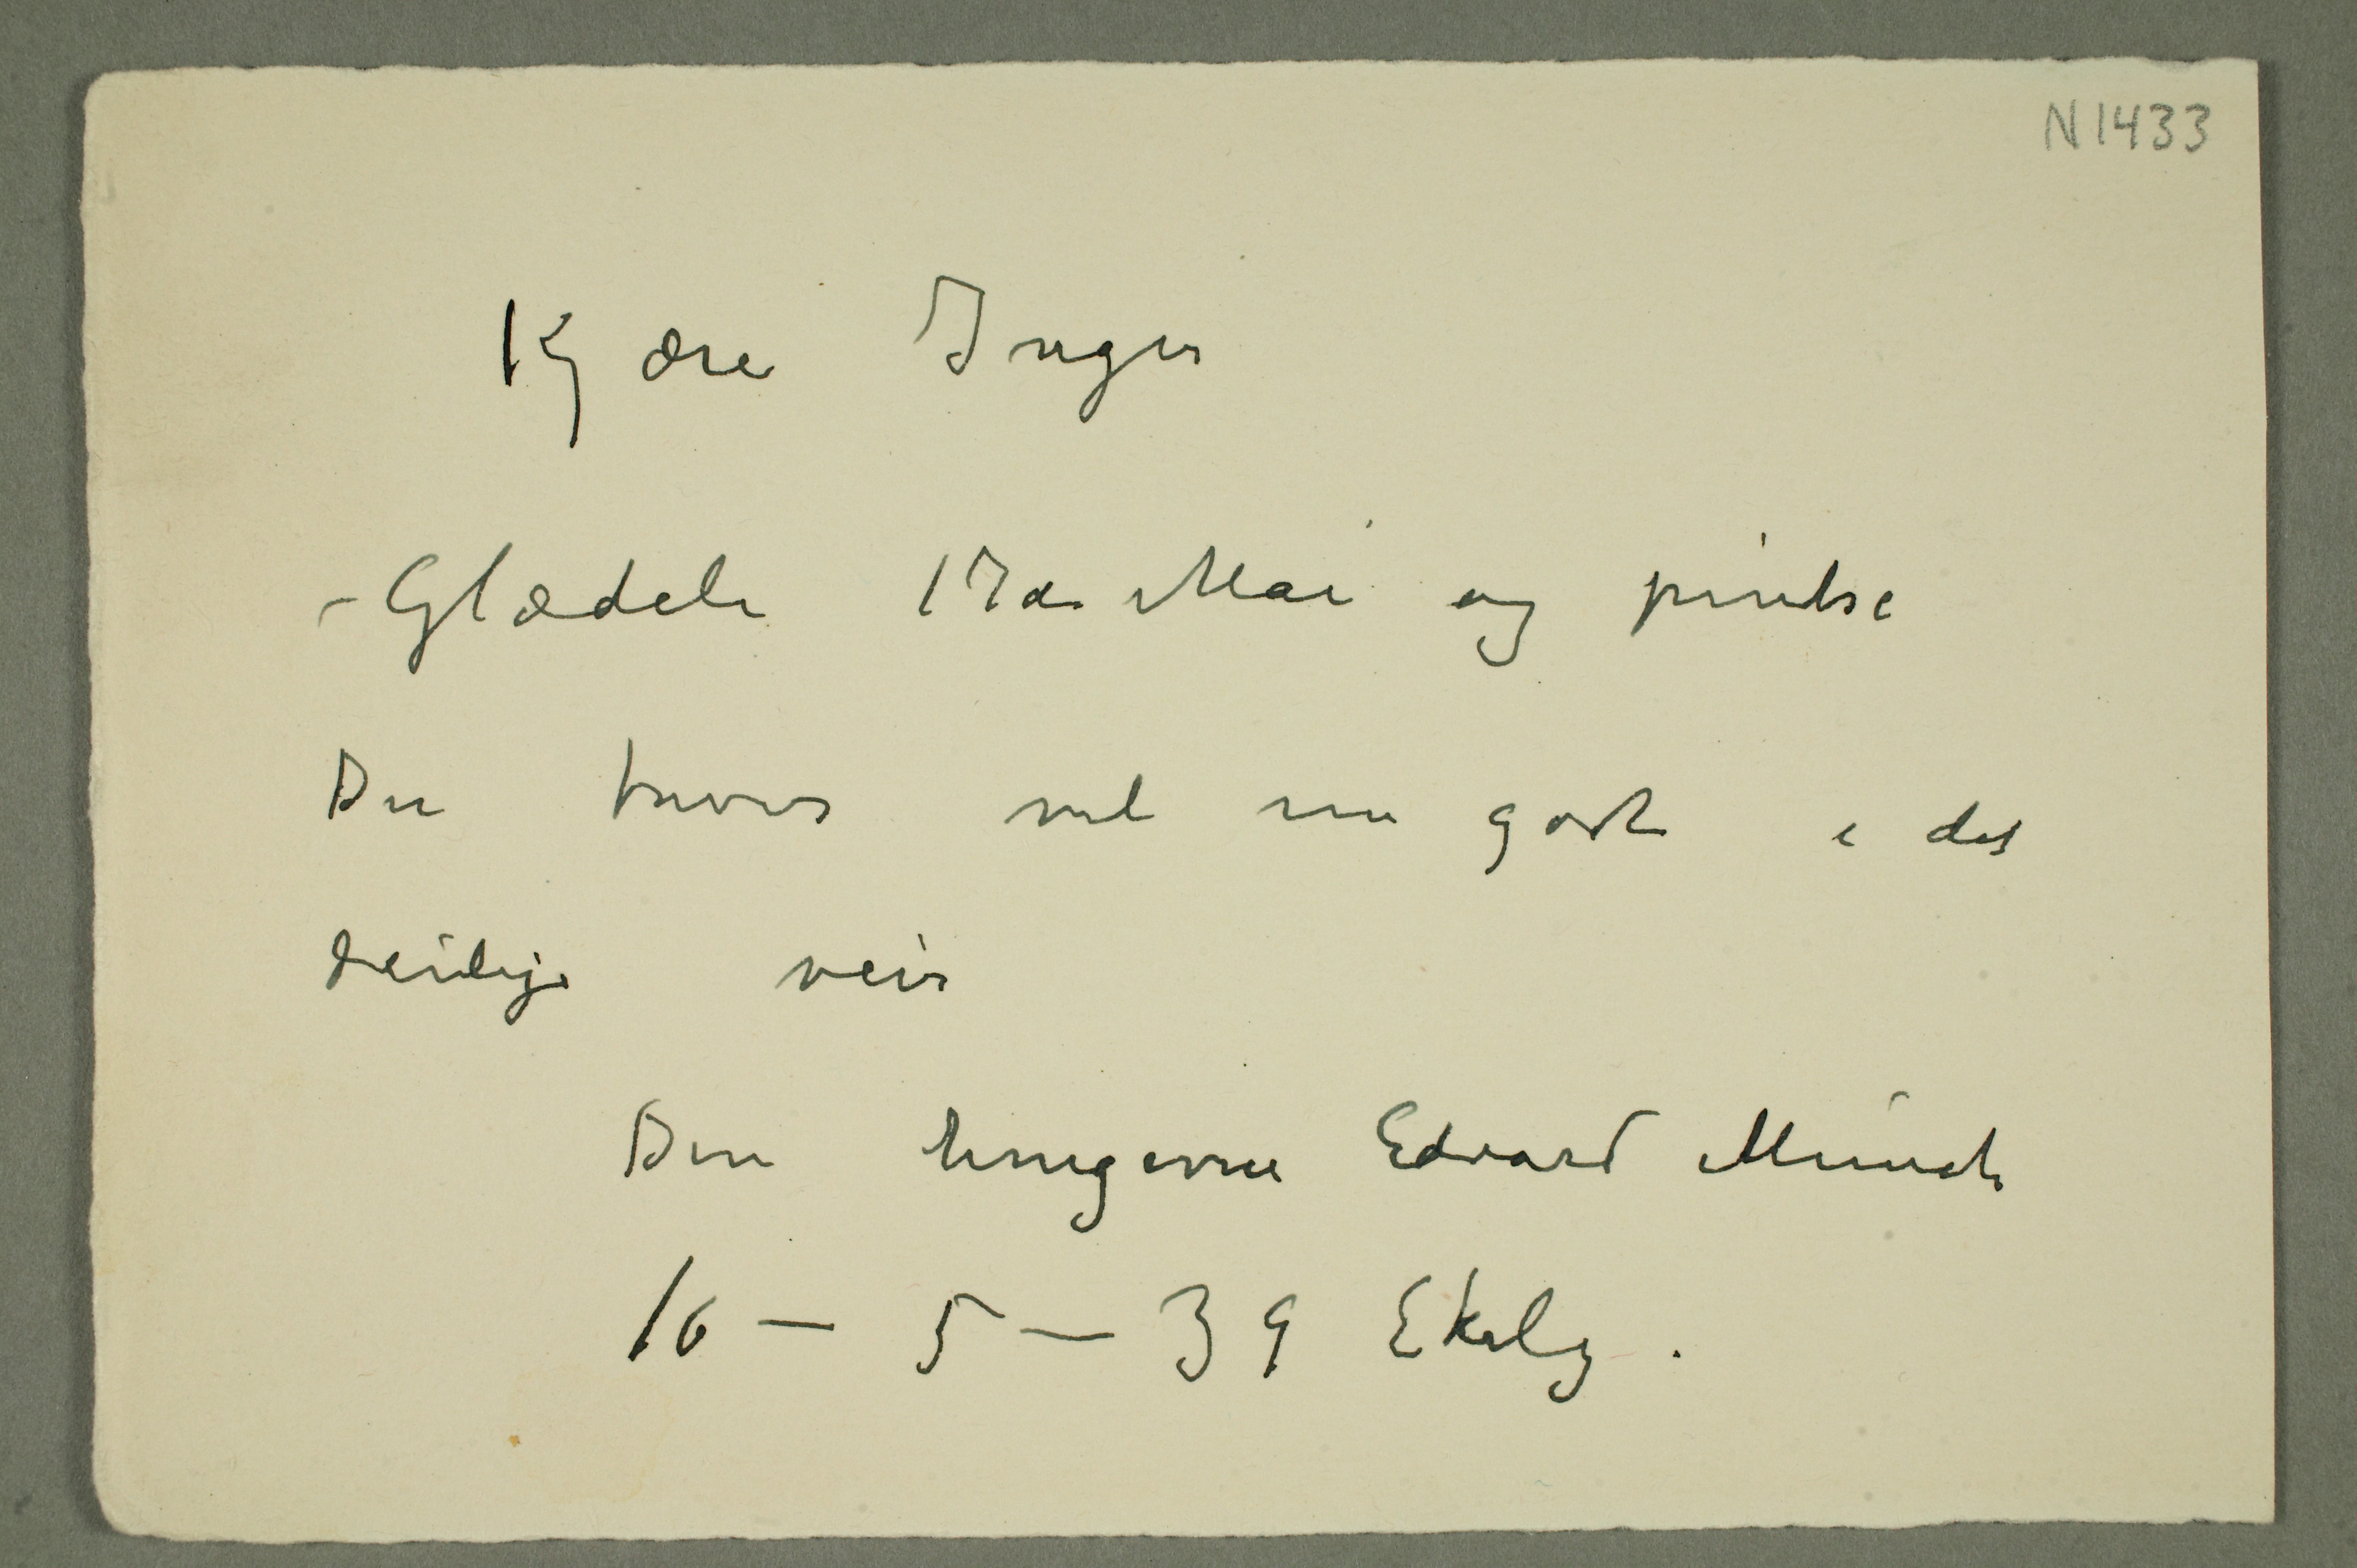 N 1433
Kjære Inger
– Glædeli 17de Mai og pintse
Du trives vel nu godt i det
deilige veir
Din hengivne Edvard Munch
16 – 5 – 39 Ekely.